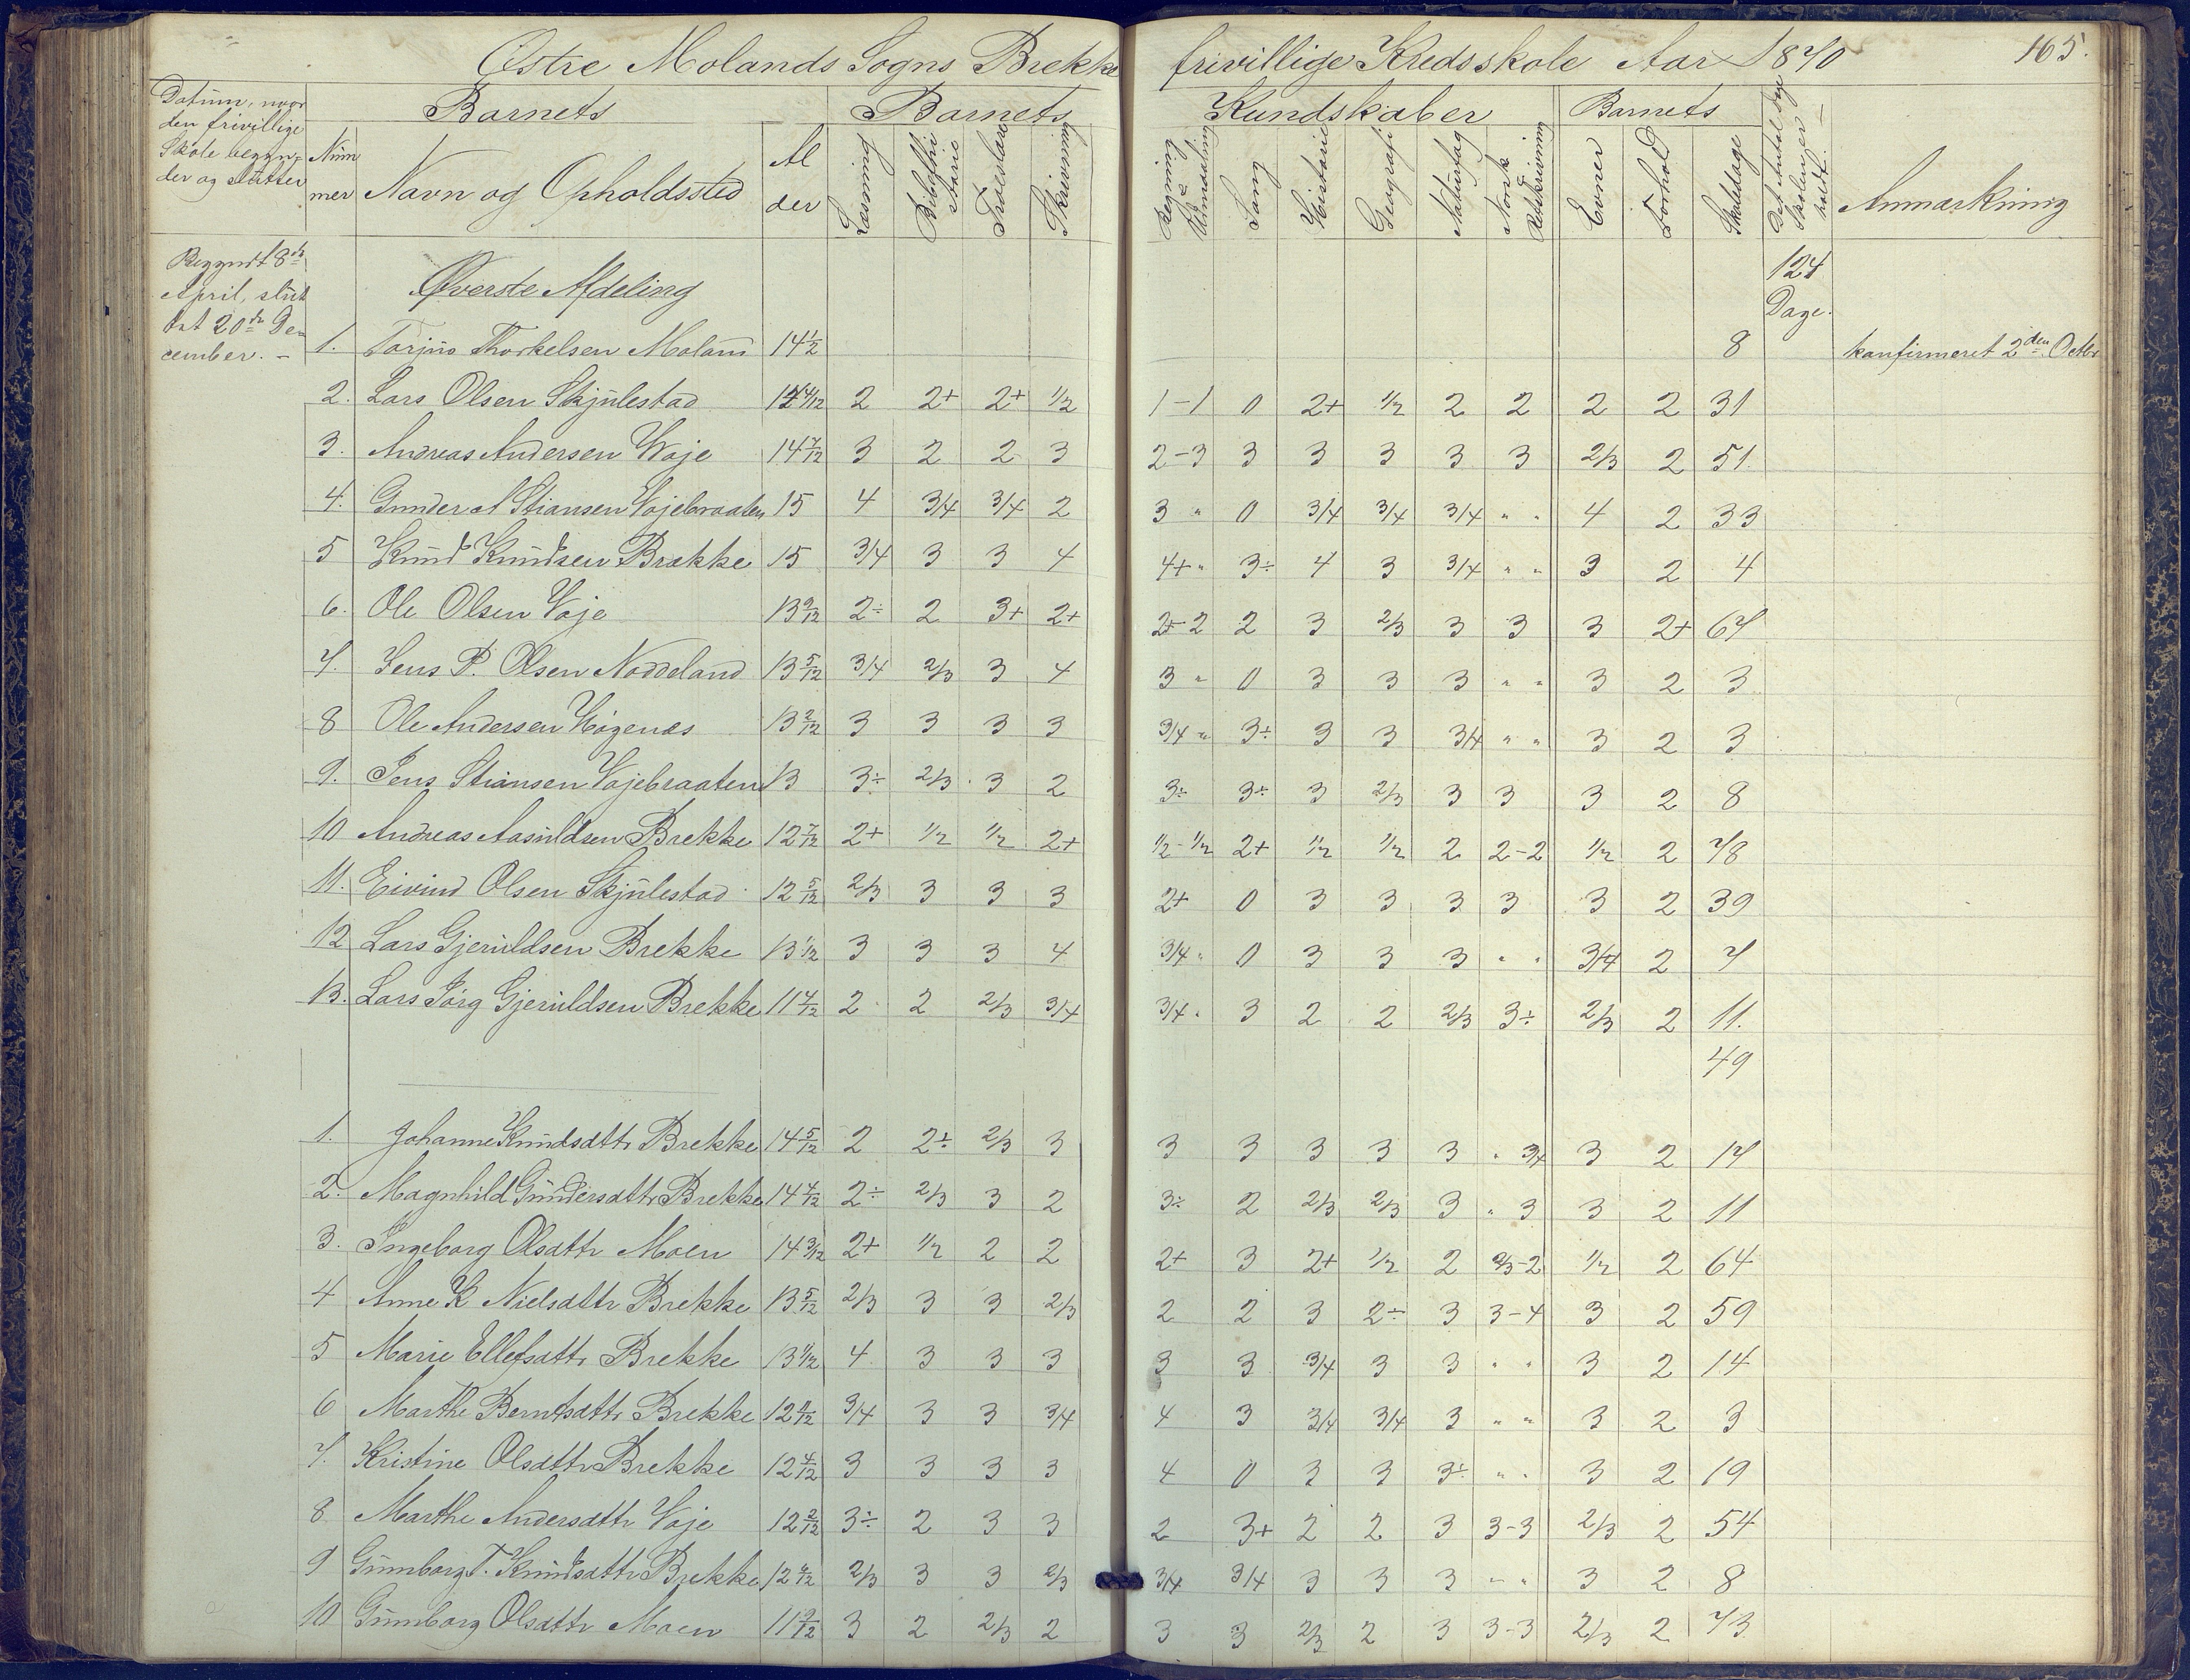 Østre Molands Sogns Brekke frivillige Kredsskole Aar 1870 165.
Datum, naar den frivillige Skole begyn-
der og slutter
Barnets Barnets Kundskaber Barnets
Num
mer Navn og Opholdssted Al
der Læsning Bibelhi
storie Troeslære Skrivning Regning & Udmaaling Sang Historie Geografi Naturfag Norsk & Retskrivning Evner Forhold Skoledage Det Antal Dage Skolen er holdt. Anmærkning
Begyndt 8de
April, slut
tet 20de De
cember. –
Øverste Afdeling 124 Dage.
1. Torjus Thorkelsen Moland 14 1/2 8 konfirmeret 2den Octbr
2. Lars Olsen Skjulestad 14 4/12 2 2+ 2+ 1/2 1-1 0 2+ 1/2 2 2 2 2 31
3. Andreas Andersen Voje 14 7/12 3 2 2 3 2-3 3 3 3 3 3 2/3 2 51
4. Gunder A Stiansen Vojebraaten 15 4 3/4 3/4 2 3 " 0 3/4 3/4 3/4 " " 4 2 33
5 Knud Knudsen Brekke 15 3/4 3 3 4 4+ " 3÷ 4 3 3/4 " " 3 2 4
6. Ole Olsen Voje 13 9/12 2÷ 2 3+ 2+ 2+-2 2 3 2/3 3 3 3 2+ 67
7. Jens P. Olsen Noddeland 13 5/12 3/4 2/3 3 4 3 " 0 3 3 3 " " 3 2 3
8 Ole Andersen Högenæs 13 2/12 3 3 3 3 3/4 " 3÷ 3 3 3/4 " " 3 2 3
9. Jens Stiansen Vojebraaten 13 3÷ 2/3 3 2 3÷ 3÷ 3 2/3 3 3 3 2 8
10 Andreas Aasuldsen Brekke 12 7/12 2+ 1/2 1/2 2+ 1/2-1/2 2+ 1/2 1/2 2 2-2 1/2 2 78
11. Eivind Olsen Skjulestad 12 5/12 2/3 3 3 3 2+ 0 3 3 3 3 3 2 39
12 Lars Gjeruldsen Brekke 13 1/12 3 3 3 4 3/4 " 0 3 3 3 " " 3/4 2 7
13. Lars Jörg Gjeruldsen Brekke 11 7/12 2 2 2/3 3/4 3/4 " 3 2 2 2/3 3÷ 2/3 2 11.
49
1. Johanne Knudsdttr Brekke 14 5/12 2 2÷ 2/3 3 3 3 3 3 3 " 3/4 3 2 17
2. Magnhild Gundersdttr Brekke 14 4/12 2÷ 2/3 3 2 3÷ 2 2/3 2/3 3 " 3 3 2 11
3. Ingeborg Olsdttr Moen 14 3/12 2+ 1/2 2 2 2+ 3 2+ 1/2 2 2/3-2 1/2 2 64
4 Anne K Nielsdttr Brekke 13 5/12 2/3 3 3 2/3 2 2 3 2÷ 3 3-4 3 2 59
5 Marie Ellefsdttr Brekke 13 1/12 4 3 3 3 3 3 3/4 3 3 " " 3 2 14
6 Marthe Berntsdttr Brekke 12 11/12 3/4 3 3 3/4 4 3 3/4 3/4 3 " " 3 2 3
7. Kristine Olsdttr Brekke 12 4/12 3 3 3 3 4 0 3 3 3÷ " " 3 2 19
8 Marthe Andersdttr Voje 12 2/12 3÷ 2 3 3 2 3+ 2 2 3 3-3 2/3 2 54
9 Gunborg T. Knudsdttr Brekke 12 2/3 3 3 2/3 3/4 3/4 3 3 3 " " 3 2 8
10 Gunborg Olsdttr Moen 11 9/12 3 2 2/3 2 3 3 2/3 2 3 3-3 2/3 2 73